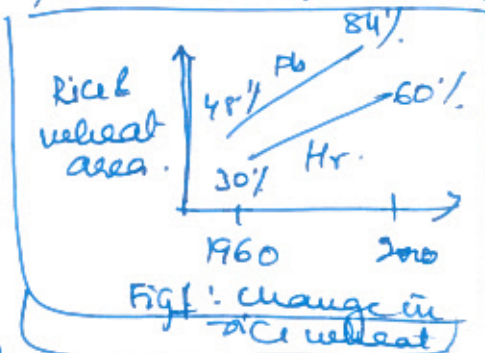 84%
Rice &
wheat
area.
48%
Pb
60%
30%
Hr.
1960
2000
Fig 1: change in
rice wheat